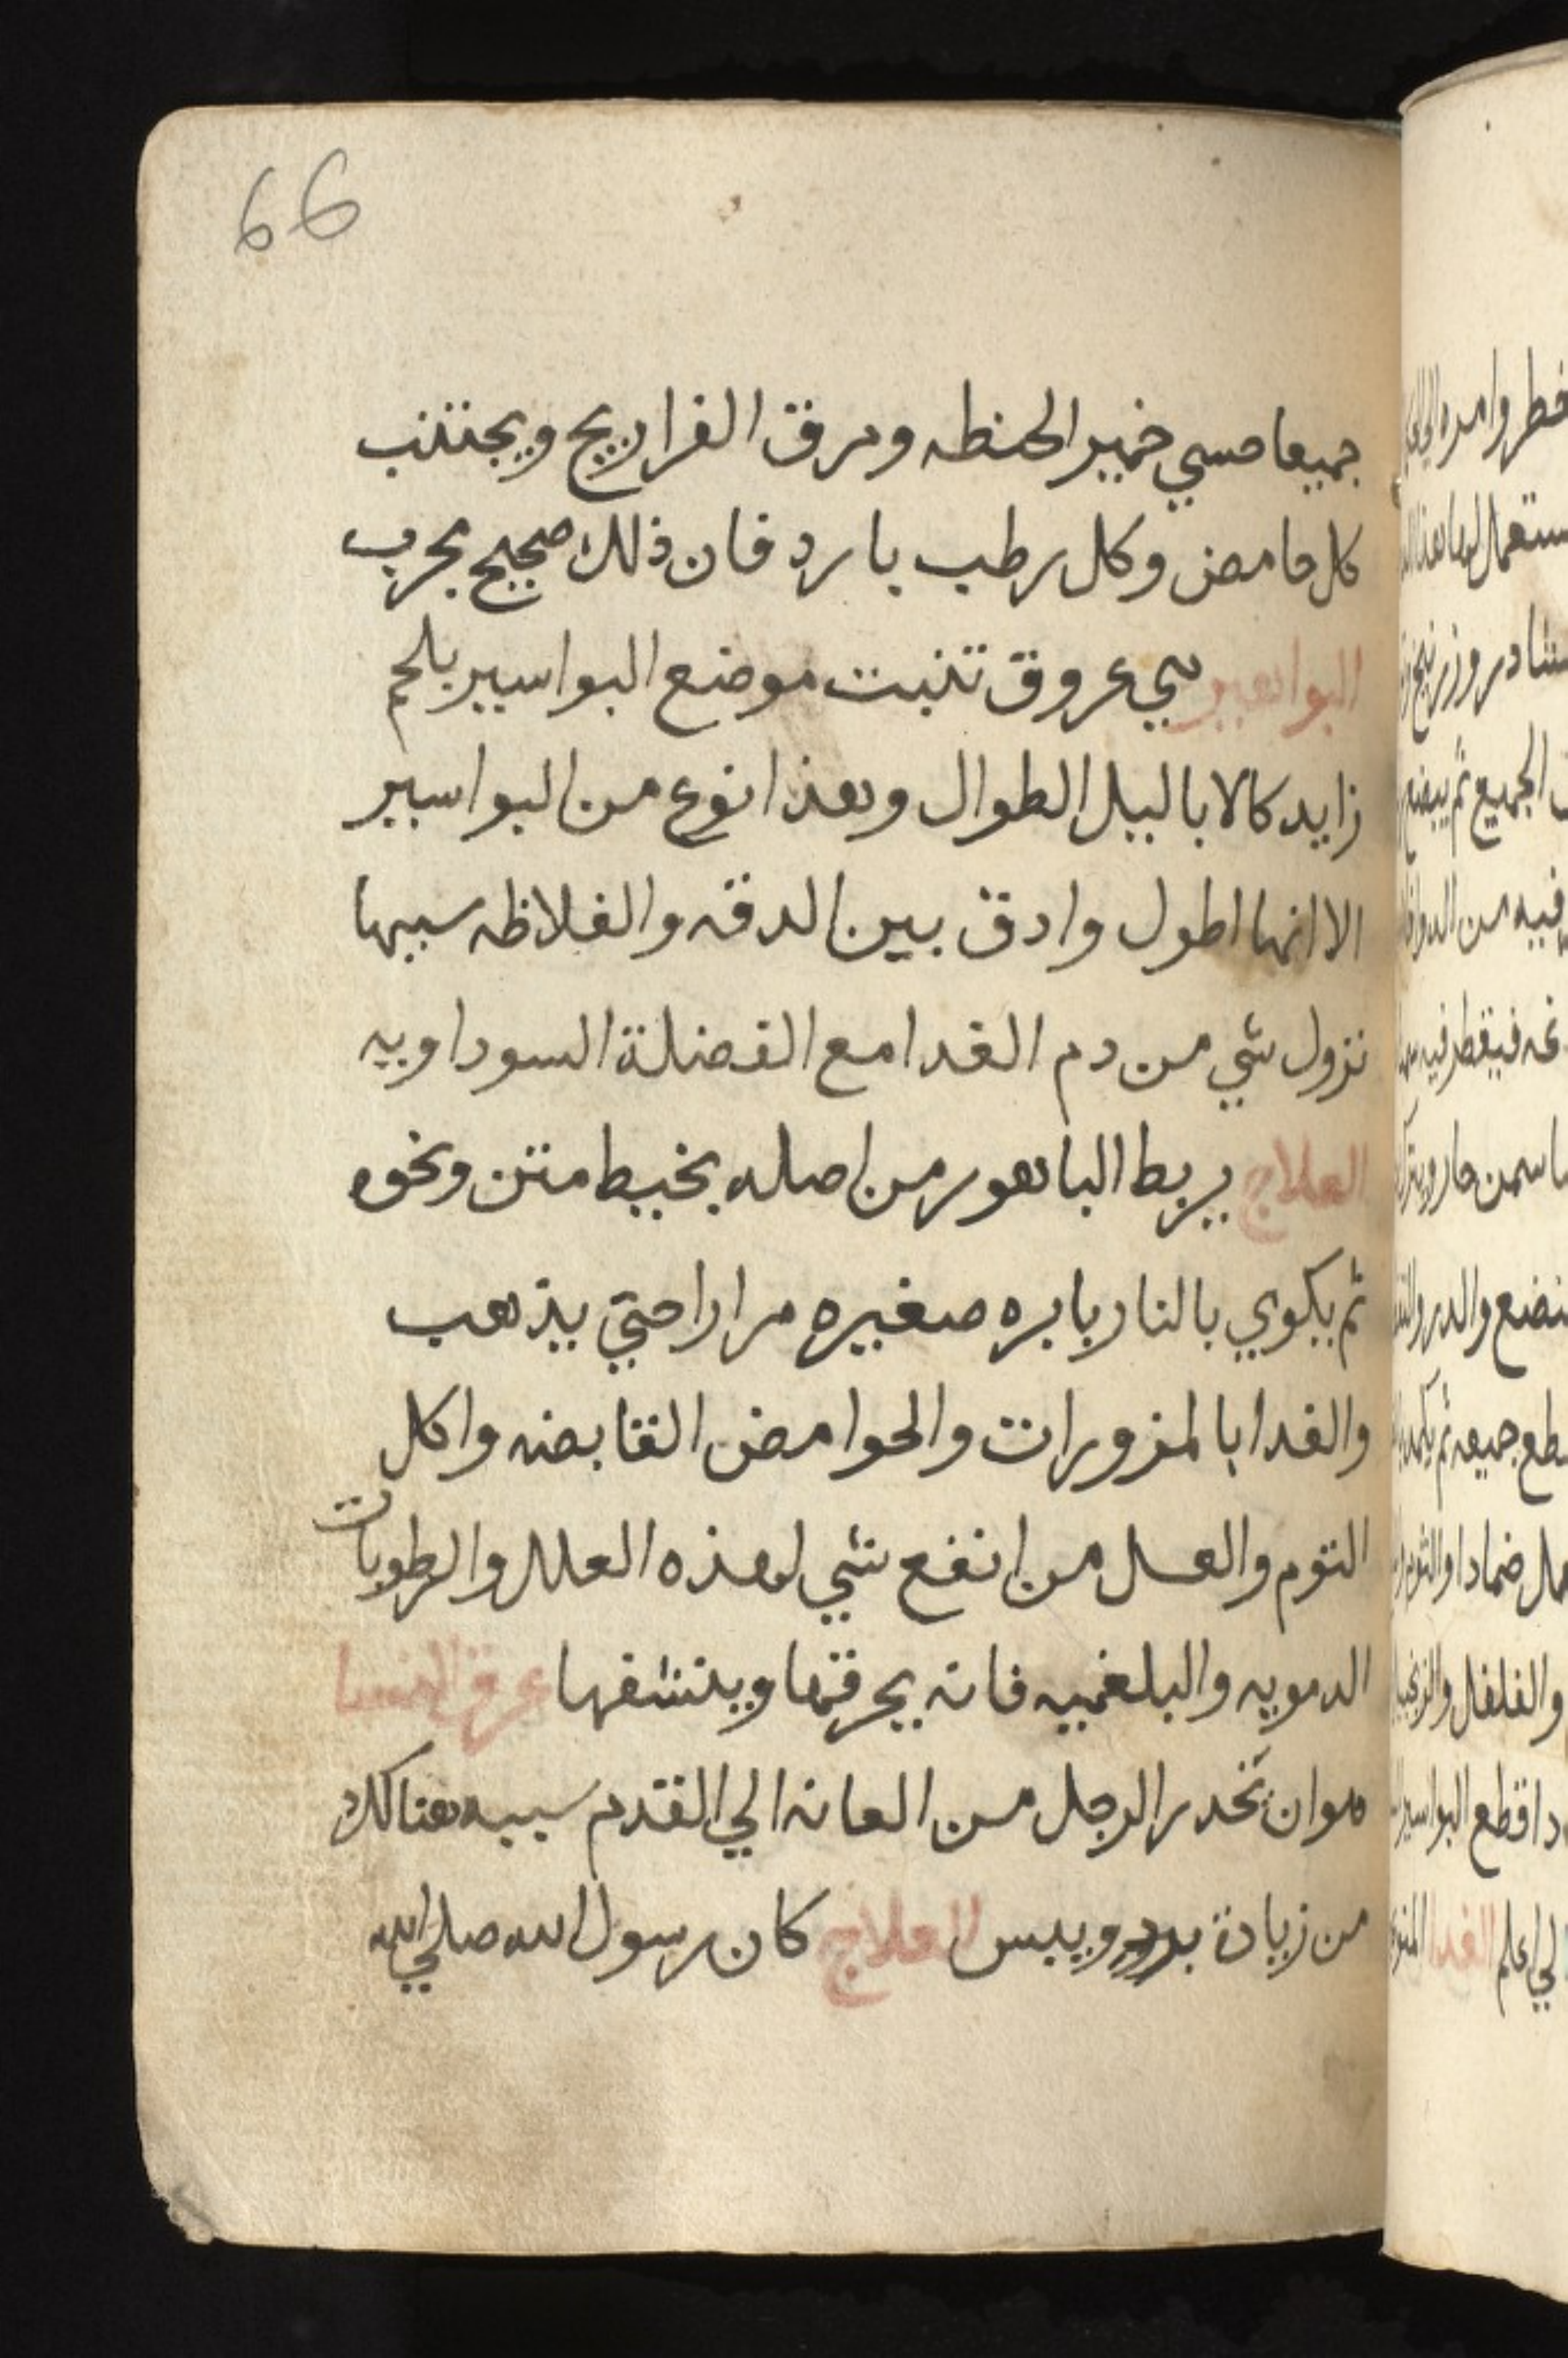 66
جميعا حسي خمير الحنطه ومرق الفراريج ويجتنب
كل حامض وكل رطب بارد فان ذلك صحيح مجرب
البواهير هي عروق تنبت موضع البواسير بلحم
زايد كالابالبيل الطوال وهذا نوع من البواسير
الا انها اطول وادق بين الدقه والغلاظه سببها
نزول شي من دم الغدا مع الفضلة السوداويه
العلاج يربط الباهور من اصله بخيط متن ونحوه
ثم يكوي بالنار بابره صغيره مرارا حتي يذهب
والغدا بالمزورات والحوامض القابضه واكل
الثوم والعسل من انفع شي لهذه العلل والرطوبات
الدمويه والبلغميه فانه يحرقها وينشفها عرق النسا
هو ان تخدر الرجل من العانه الي القدم سببه هنالك
من زيادة برد ويبس العلاج كان رسول الله صلي الله